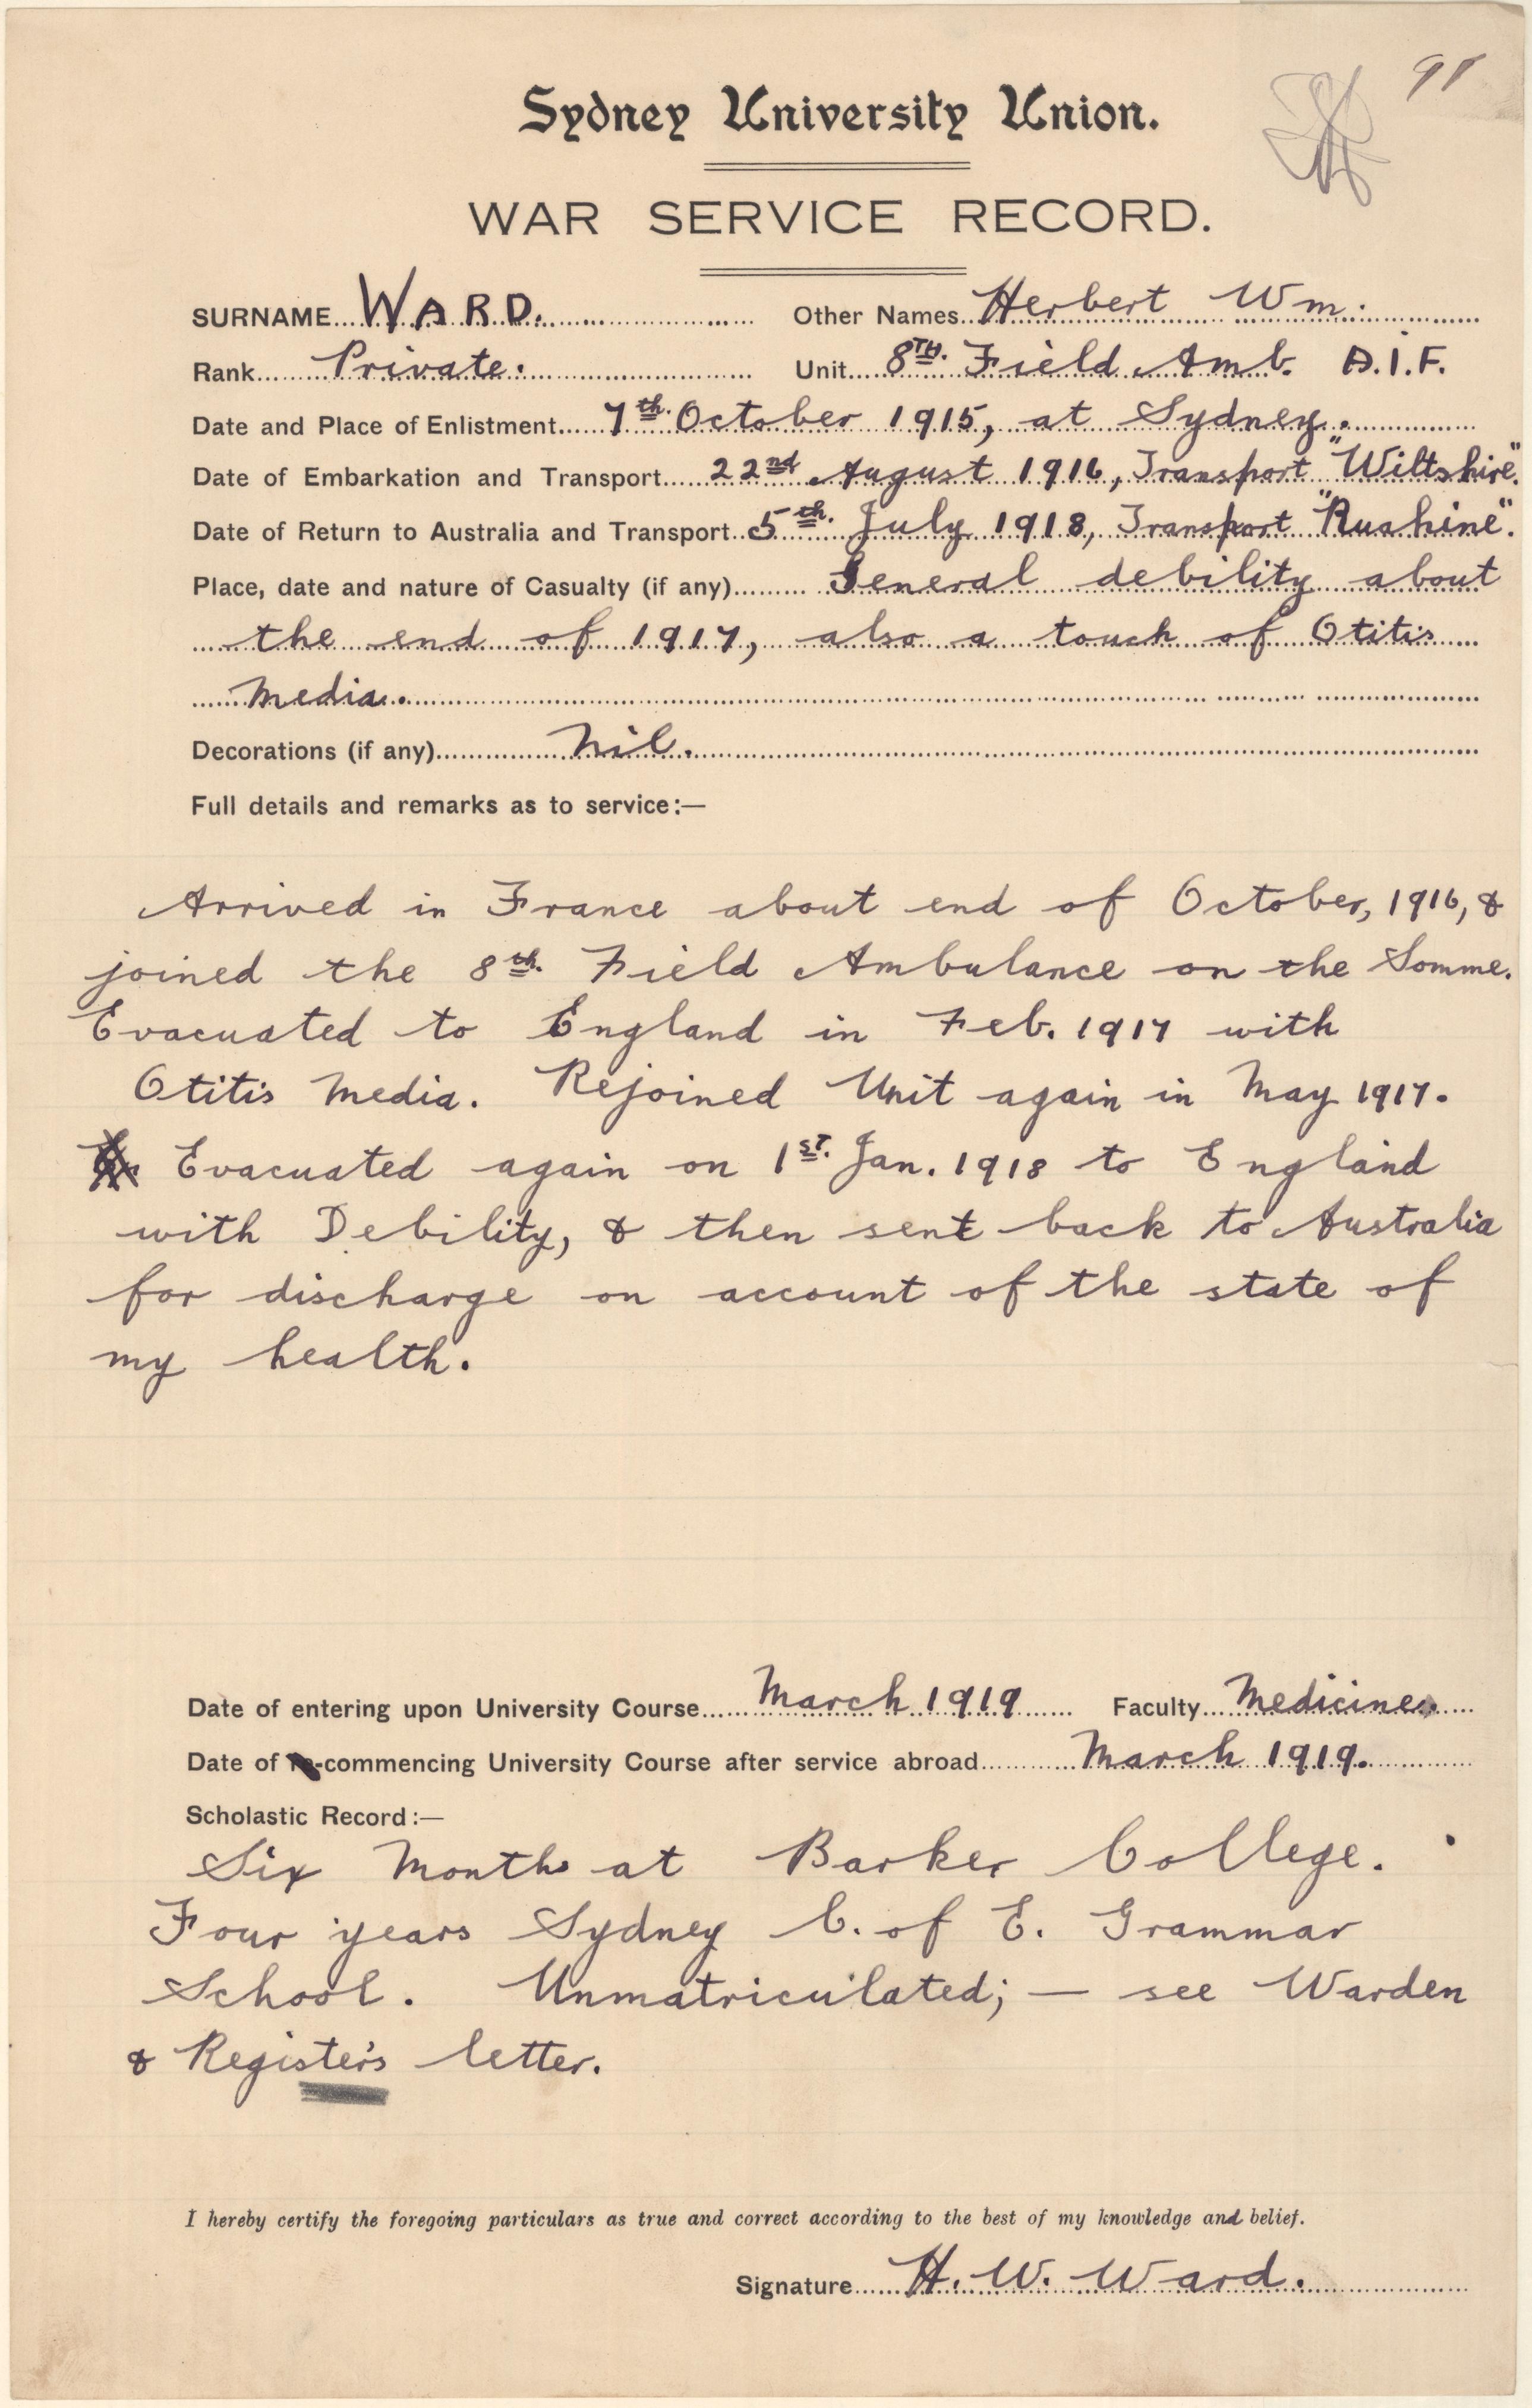 91
Sydney University Union.
WAR SERVICE RECORD.
SURNAME... WARD. Other Names.. Herbert Wm.
Rank... Private. Unit... 8TH. Field Amb. A.I.F.
Date and Place of Enlistment... 7th. October 1915, at Sydney.
Date of Embarkation and Transport... 22nd August 1916, Transport "Wiltshire".
Date of Return to Australia and Transport.. 5th. July 1918, Transport "Ruahine".
Place, date and nature of Casualty (if any)... General debility about
the end of 1917, also a touch of Otitis
Media.
Decorations (if any)... Nil.
Full details and remarks as to service:—
Arrived in France about end of October, 1916, &
joined the 8th. Field Ambulance on the Somme.
Evacuated to England in Feb. 1917 with
Otitis Media. Rejoined Unit again in May 1917.
Evacuated again on 1ST. Jan. 1918 to England
with Debility, & then sent back to Australia
for discharge on account of the state of
my health.
Date of entering upon University Course... March 1919 Faculty... Medicine.
Date of re-commencing University Course after service abroad... March 1919.
Scholastic Record:—
Six Months at Barker College.
Four years Sydney C. of E. Grammar
School. Unmatriculated; — see Warden
& Register's letter.
I hereby certify the foregoing particulars as true and correct according to the best of my knowledge and belief.
Signature... H. W. Ward.